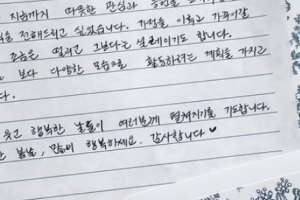 지금까지 따뜻한 관심과
을 전해드리고 싶었습니다. 가정을 이루고
조금은 떨리고 그보다는 설레이기도 합니다.
보다 다양한 모습으로 활동하려는 계획을 가지고
다.
웃고 행복한 날들이 여러분께 펼쳐지기를 기도합니다.
봄날, 행복하세요. 감사합니다 ♥